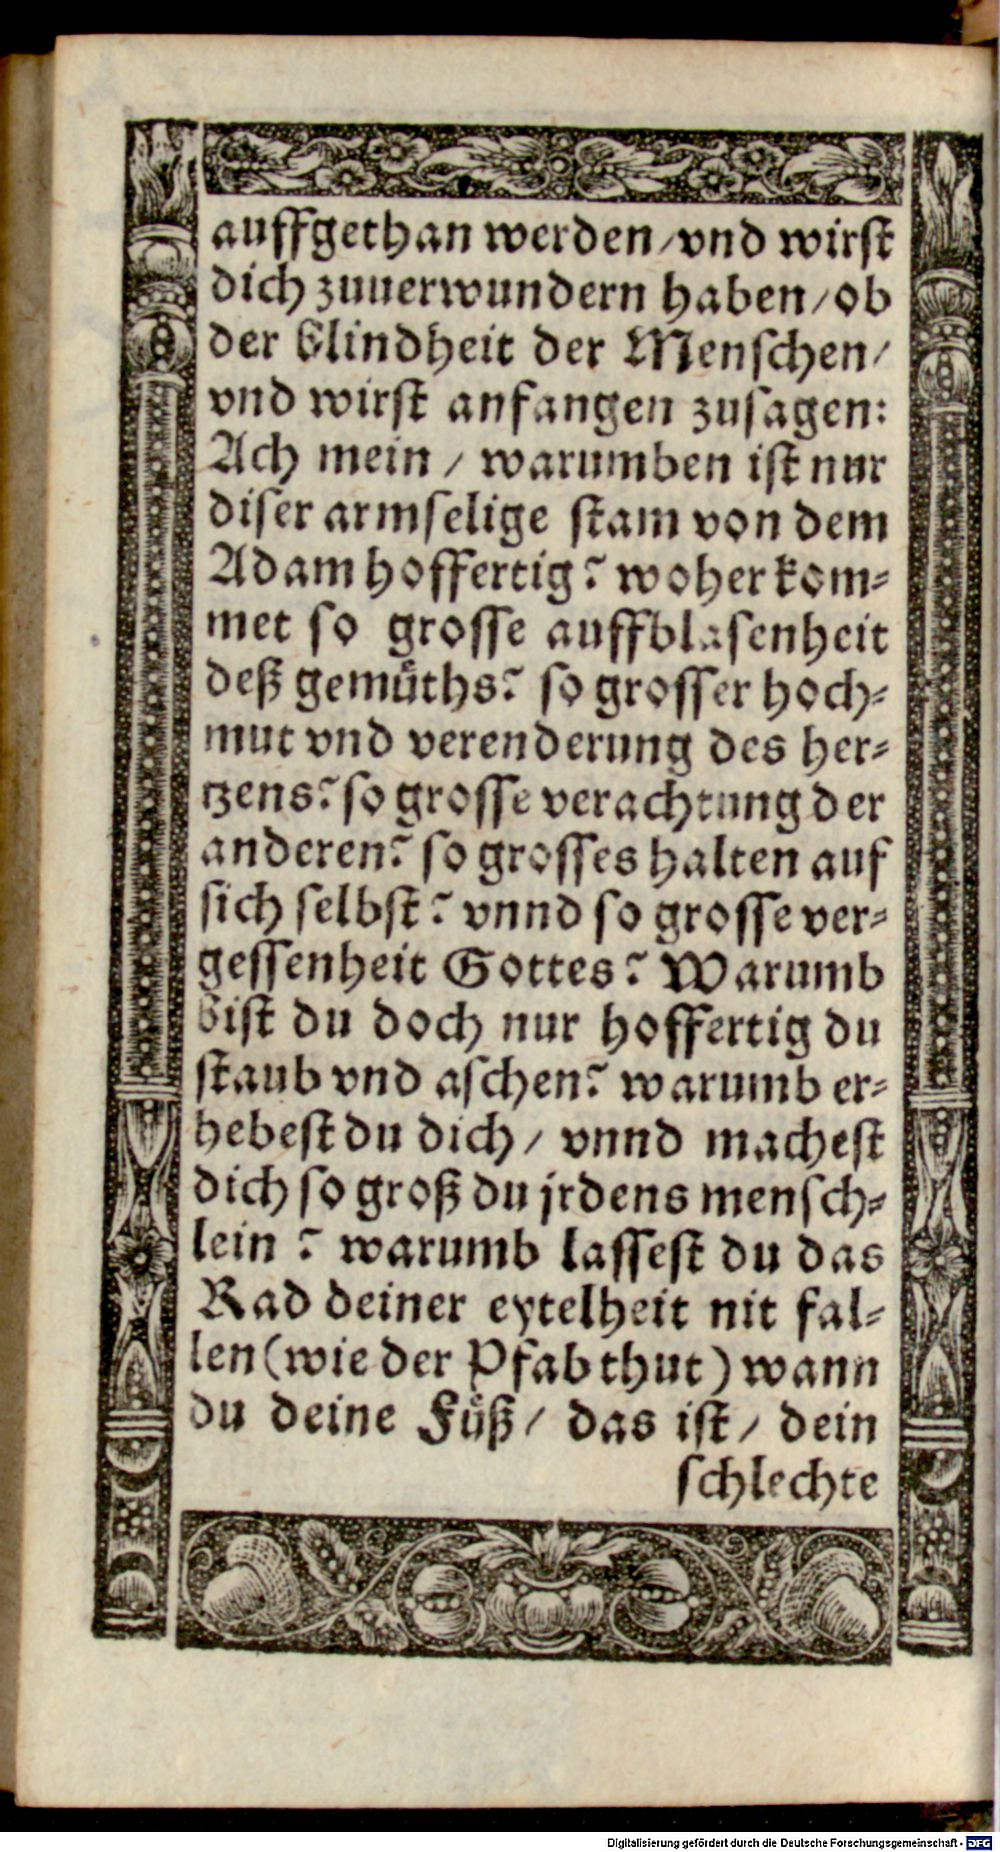 auffgethan werden/vnd wirſt
dich zuuerwundern haben/ob
der blindheit der Menſchen/
vnd wirſt anfangen zuſagen:
Ach mein / warumben iſt nur
diſer armſelige ſtam von dem
Adam hoffertig? woher kom⸗
met ſo groſſe auffblaſenheit
deß gemuͤths? ſo groſſer hoch⸗
mut vnd verenderung des her⸗
tzens? ſo groſſe verachtung der
anderen? ſo groſſes halten auf
ſich ſelbſt? vnnd ſo groſſe ver⸗
geſſenheit Gottes? Warumb
biſt du doch nur hoffertig du
ſtaub vnd aſchen? warumb er⸗
hebeſt du dich / vnnd macheſt
dich ſo groß du jrdens menſch⸗
lein? warumb laſſeſt du das
Rad deiner eytelheit nit fal⸗
len (wie der Pfab thut) wann
du deine Fuͤß / das iſt / dein
ſchlechte
Digitalisierung gefördert durch die Deutsche Forschungsgemeinschaft - DFG